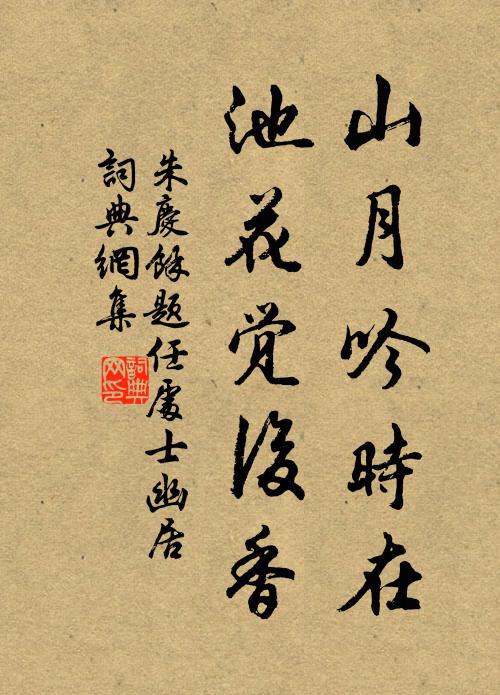 山月吟時在
池花覺後香
朱慶餘題任處士幽居
詞典網集
詞典網印